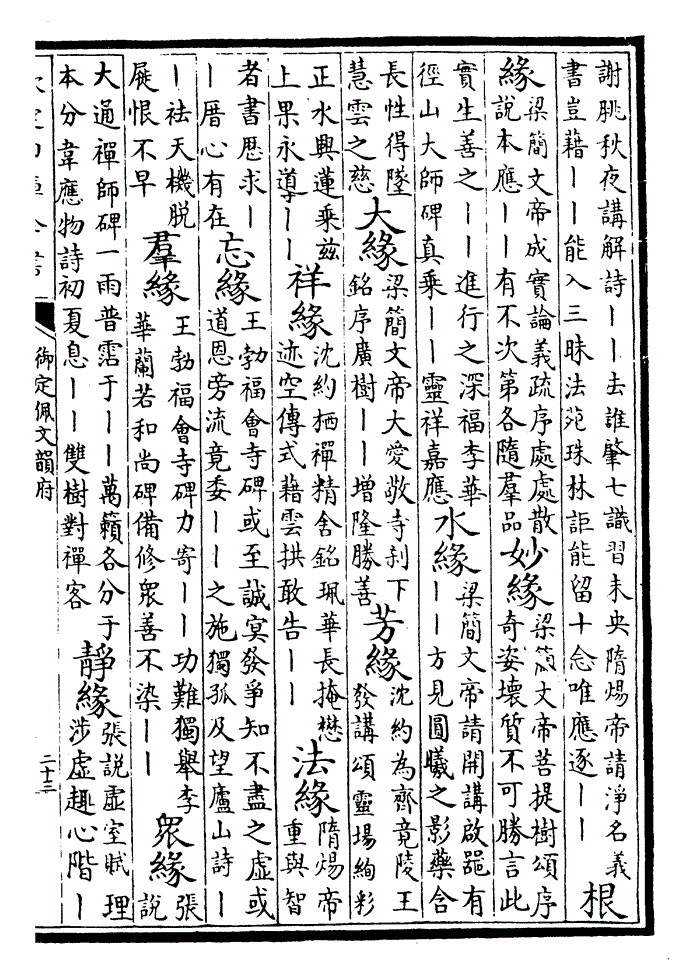 謝眺秋夜講解詩丨丨去誰肇七識習未央隋煬帝請淨名義
書豈藉丨丨能入三昧法苑珠林詎能留十念唯應逐丨丨
根
緣
梁簡文帝成實論義疏序處處散
說本應丨丨有不次第各隨羣品
妙緣
梁簡文帝菩提樹頌序
奇姿壞質不可勝言此
實生善之丨丨進行之深福李華
徑山大師碑真乘丨丨靈祥嘉應
水緣
梁簡文帝請開講啟噐有
丨丨方見圓曦之影藥含
長性得墜
慧雲之慈
大緣
梁簡文帝大愛敬寺刹下
銘序廣樹丨丨增隆勝善
芳緣
沈約為齊竟陵王
發講頌靈場絢彩
正水興蓮乘兹
上果永導丨丨
祥緣
沈約栖禪精舍銘珮華長掩懋
迹空傳式藉雲拱敢告丨丨
法緣
隋煬帝
重與智
者書歴求丨
丨厝心有在
忘緣
王勃福會寺碑或至誠㝠發爭知不盡之虛或
道恩旁流竟委丨丨之施獨孤及望廬山詩丨
丨祛天機脱
屣恨不早
羣緣
王勃福會寺碑力寄丨丨功難獨舉李
華蘭若和尚碑備修衆善不染丨丨
衆緣
張
說
大通禪師碑一雨普霑于丨丨萬籟各分于
本分韋應物詩初夏息丨丨雙樹對禪客
靜緣
張說虛室賦理
涉虛趣心階丨
御定佩文韻府
二十三